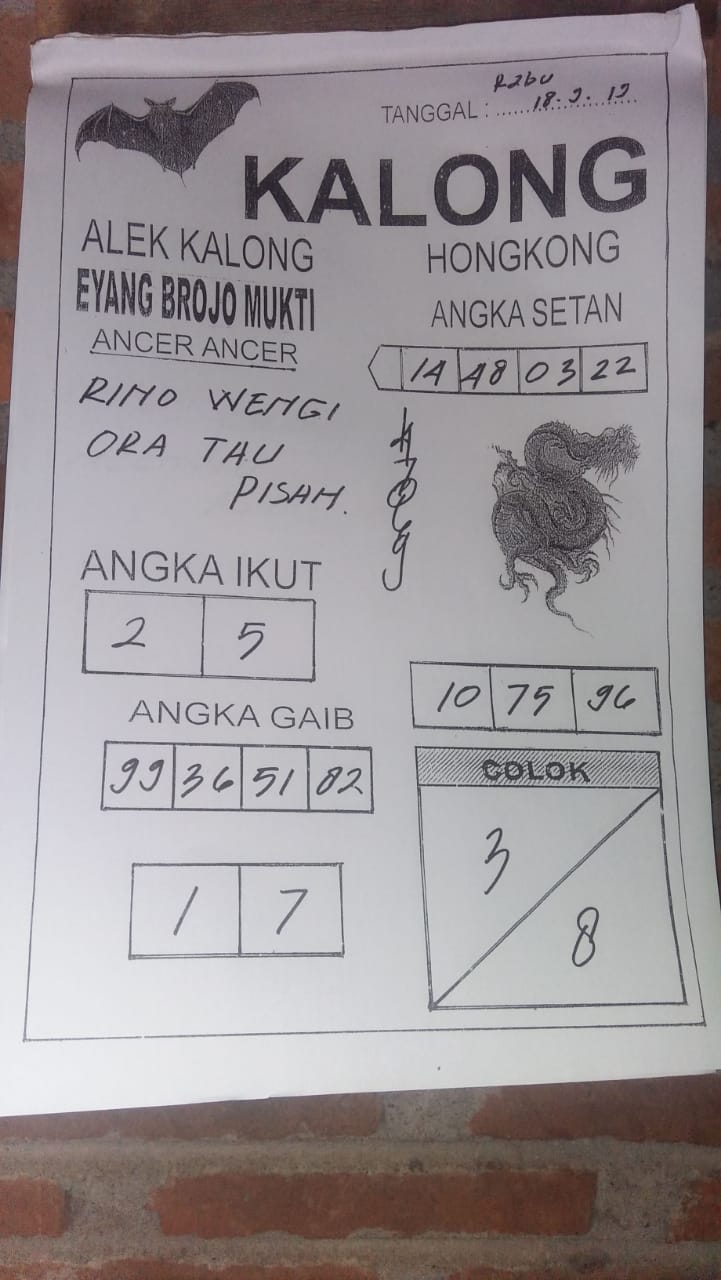 Rabu
TANGGAL : 18.9.19
KALONG
ALEK KALONG
EYANG BROJO MUKTI
ANCER ANCER
RINO WENGI
ORA TAU
PISAH.
HONGKONG
ANGKA SETAN
14 48 03 22
ANGKA IKUT
2 5
ANGKA GAIB
99 36 51 82
1 7
10 75 96
COLOK
3
8